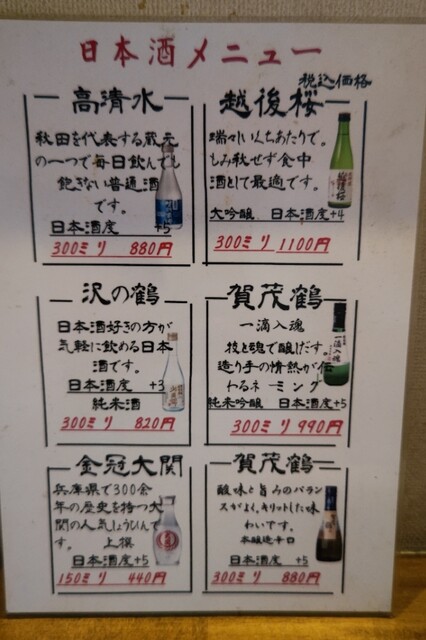 日本酒メニュー
税込価格
高清水
秋田を代表する蔵元
の一つで毎日飲んでも
飽きない普通酒
です。
日本酒度 +5
300ミリ 880円
越後桜
瑞々しい口あたりで。
しみ秋せず食中
酒として最適です。
大吟醸 日本酒度+4
300ミリ 1100円
沢の鶴
日本酒好きの方が
気軽に飲める日本
酒です。
日本酒度 +3
純米酒
300ミリ 820円
賀茂鶴
一滴入魂
技と魂で醸しだす
造り手の情熱が伝
わるネーミング
純米吟醸 日本酒度+5
300ミリ 990円
金冠大関
兵庫県で300余
年の歴史を持つ大
関の人気しょうひんで
す。 上撰
日本酒度 +5
150ミリ 440円
賀茂鶴
酸味と旨みのバラン
スがよくキリットした味
わいです。
本醸造辛口
日本酒度 +5
300ミリ 880円